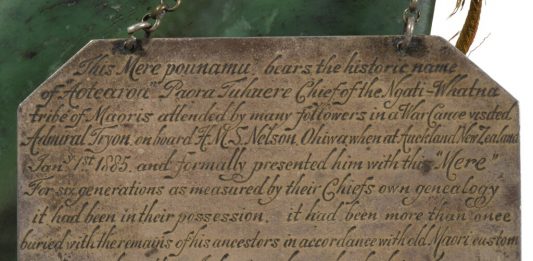 This Mere pounamu, bears the historic name
of "Aotearoa" Paora Tuhaere Chief of the Ngati-Whatua
tribe of Maoris attended by many followers in a War Canoe visited
Admiral Tryon, on board H.M.S. Nelson, Ohiwa when at Auckland New Zealand
Jany 1st 1885. and formally presented him with this "Mere"
For six generations as measured by their Chiefs own genealogy
it had been in their possession, it had been more than once
buried with the remains of his ancestors in accordance with old Maori custom